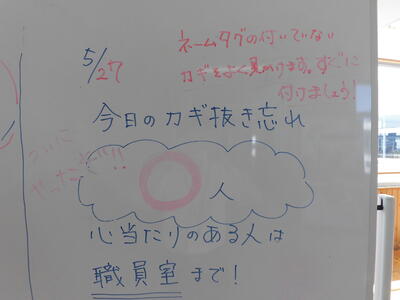 5/27
ネームタグの付いていない
カギをよく見かけます。すぐに
付けましょう!
今日のカギ抜き忘れ
ついに
やったぞ!!
0人
心当たりのある人は
職員室まで!